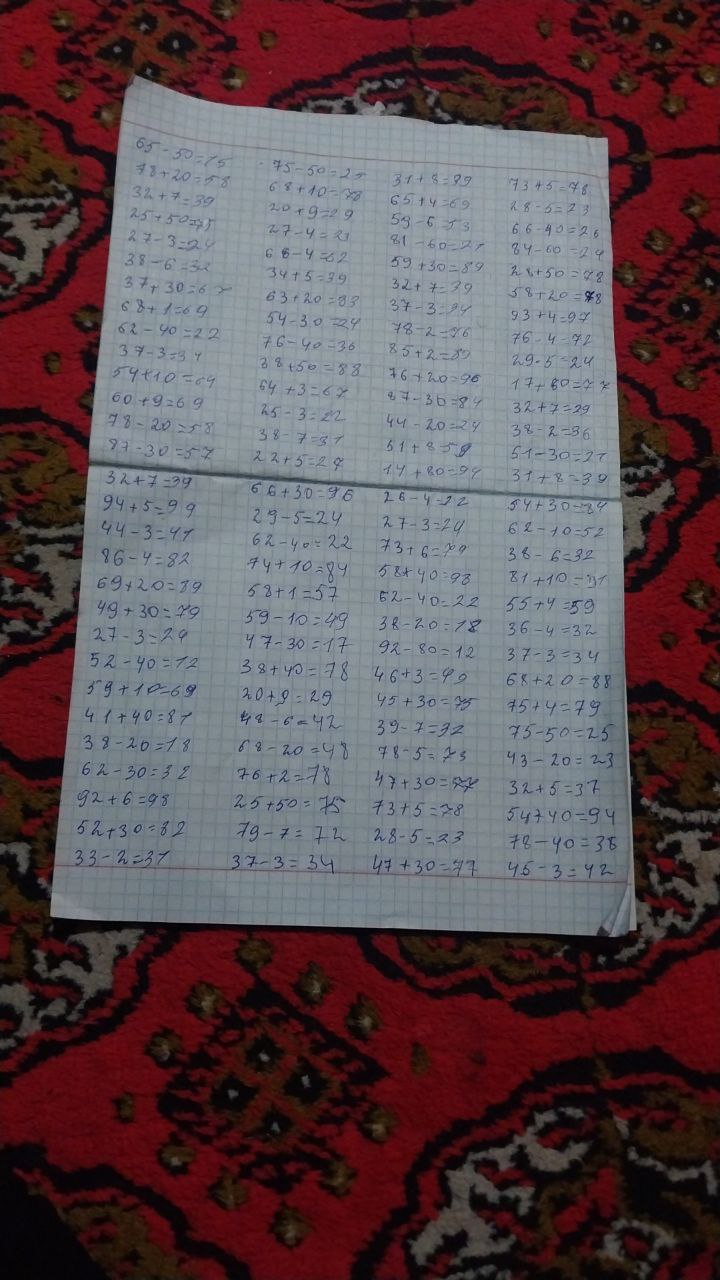 65-50=15
78+20=58
32+7=39
25+50=75
27-3=24
38-6=32
37+30=67
68+1=69
62-40=22
37-3=34
54+10=64
60+9=69
78-20=58
87-30=57
32+7=39
94+5=99
44-3=41
86-4=82
69+20=89
49+30=79
27-3=24
52-40=12
59+10=69
41+40=81
38-20=18
62-30=32
92+6=98
52+30=82
33-2=31
75-50=25
68+10=78
20+9=29
27-4=23
66-4=62
34+5=39
63+20=83
54-30=24
76-40=36
38+50=88
64+3=67
25-3=22
38-7=31
22+5=27
66+30=96
29-5=24
62-40=22
74+10=84
58+1=57
59-10=49
47-30=17
38+40=78
20+9=29
48-6=42
68-20=48
76+2=78
25+50=75
79-7=72
37-3=34
31+8=39
65+4=69
59-6=53
81-60=21
59+30=89
32+7=39
37-3=34
78-2=76
85+2=89
76+20=96
87-30=84
44-20=24
51+8 59
14+80=94
26-4=22
27-3=24
73+6=79
58+40=98
62-40=22
38-20=18
92-80=12
46+3=49
45+30=75
39-7=32
78-5=73
47+30=77
73+5=78
28-5=23
47+30=77
73+5=78
28-5=23
66-40=26
84-60=24
28+50=78
58+20=78
93+4=97
76-4=72
29-5=24
17+60=77
32+7=39
38-2=36
51-30=21
31+8=39
54+30=84
62-10=52
38-6=32
81+10=91
55+4=59
36-4=32
37-3=34
68+20=88
75+4=79
75-50=25
43-20=23
32+5=37
54+40=94
78-40=38
45-3=42